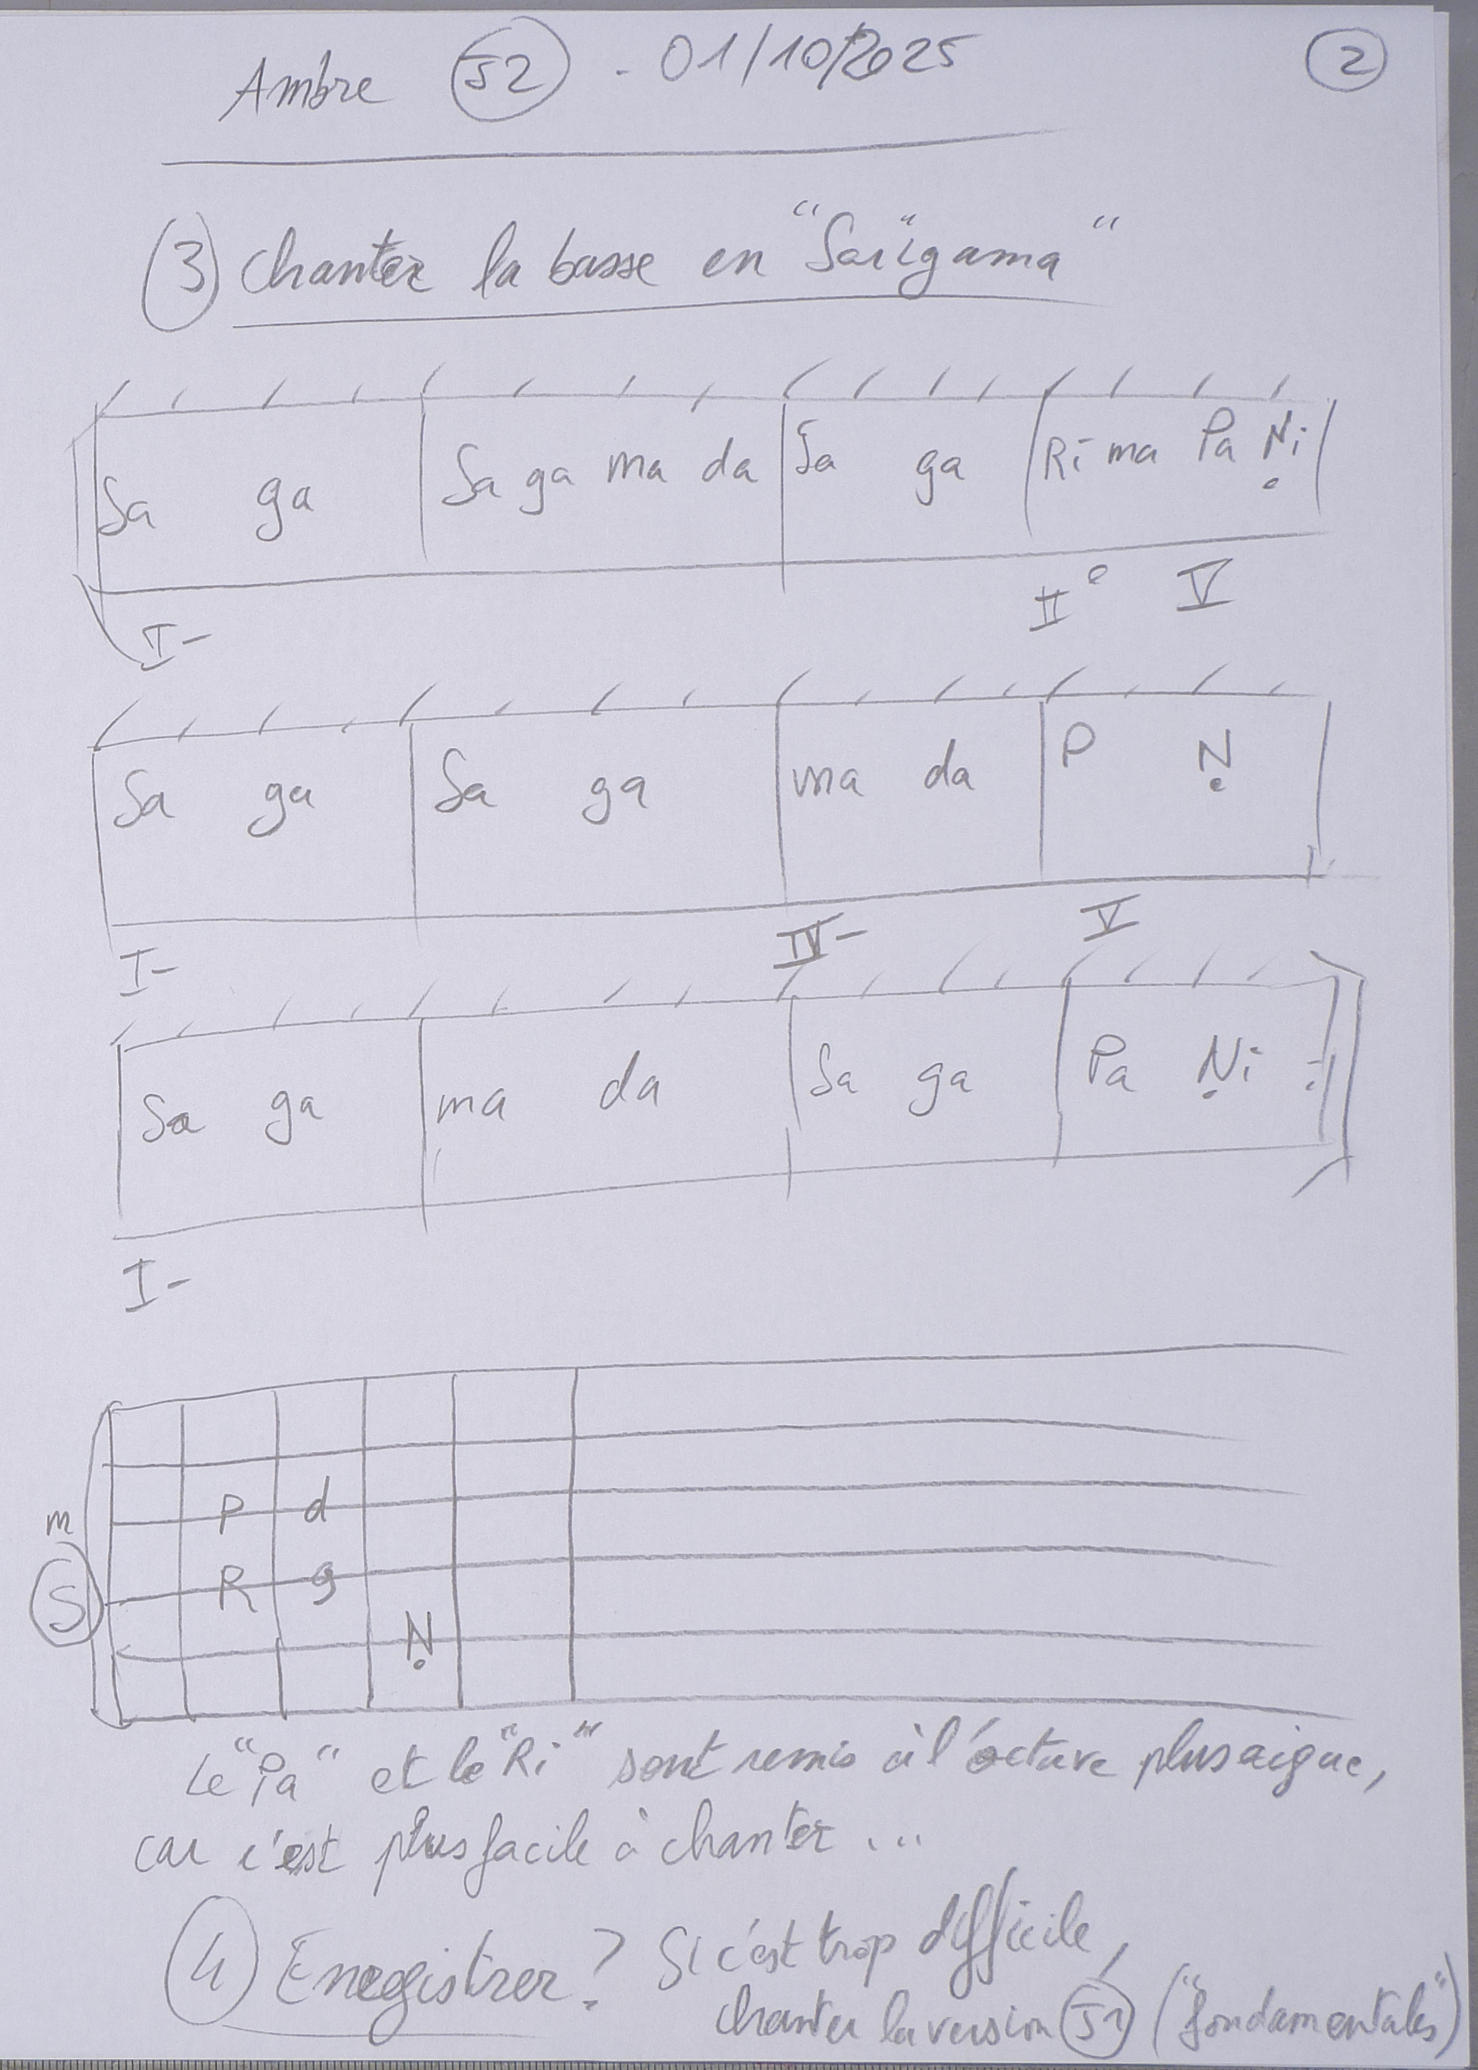 Ambre 52 - 01/10/2025 2
3 Chanter la basse en "Sarigama"
Sa ga Sa ga ma da Sa ga Ri ma Pa Ṇi
I- II° V
Sa ga Sa ga ma da P Ṇ
I- IV- V
Sa ga ma da Sa ga Pa Ṇi :
I-
m P d
S R g
Ṇ
Le "Pa" et le "Ri" sont remis à l'octave plus aigue,
car c'est plus facile à chanter ...
4 Enregistrer? Si c'est trop difficile,
chanter la version 51 ("fondamentales")